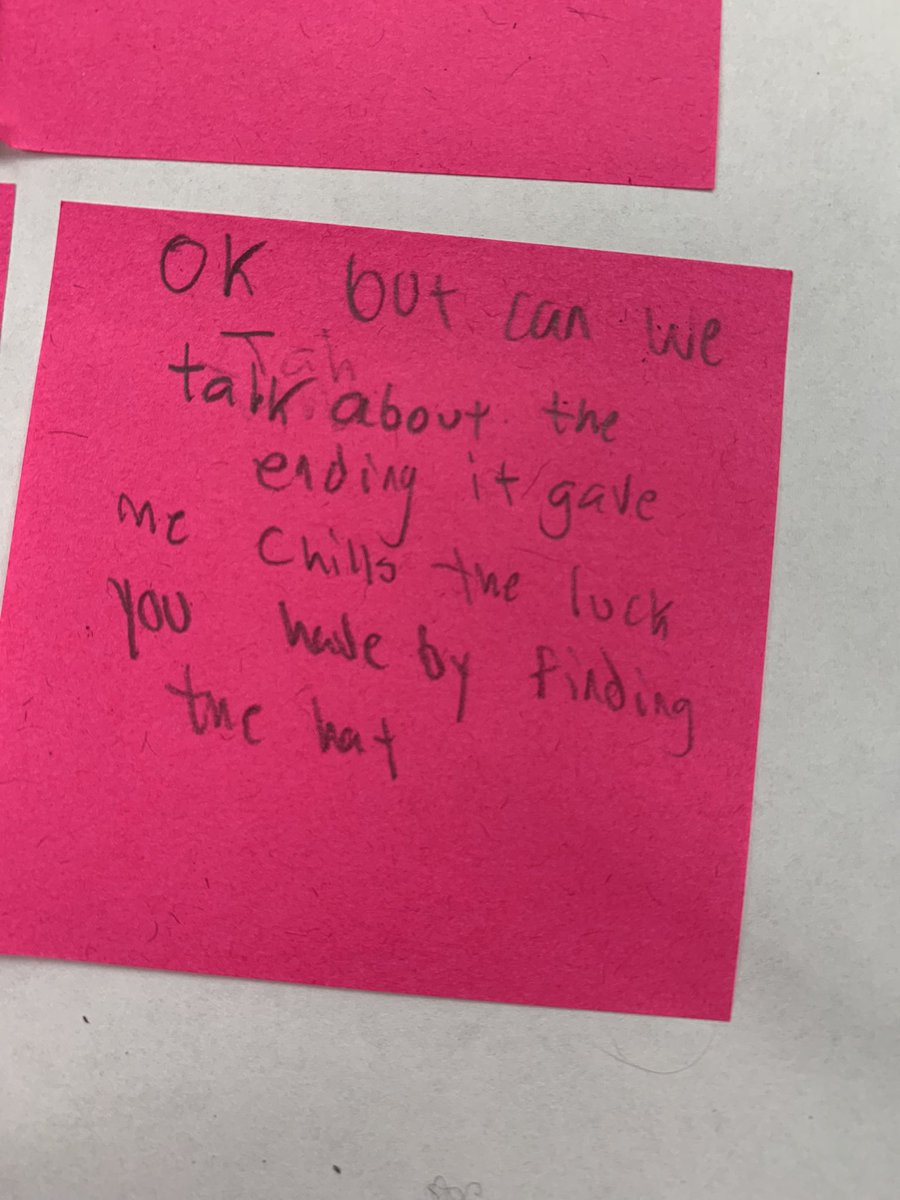 OK but can we
talk about the
ending it gave
me chills the luck
you have by finding
the hat